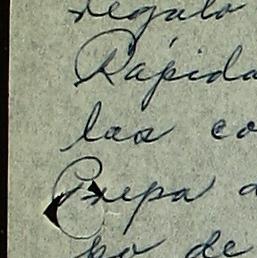 regalo
Rápida
las co
Prepa a
po de